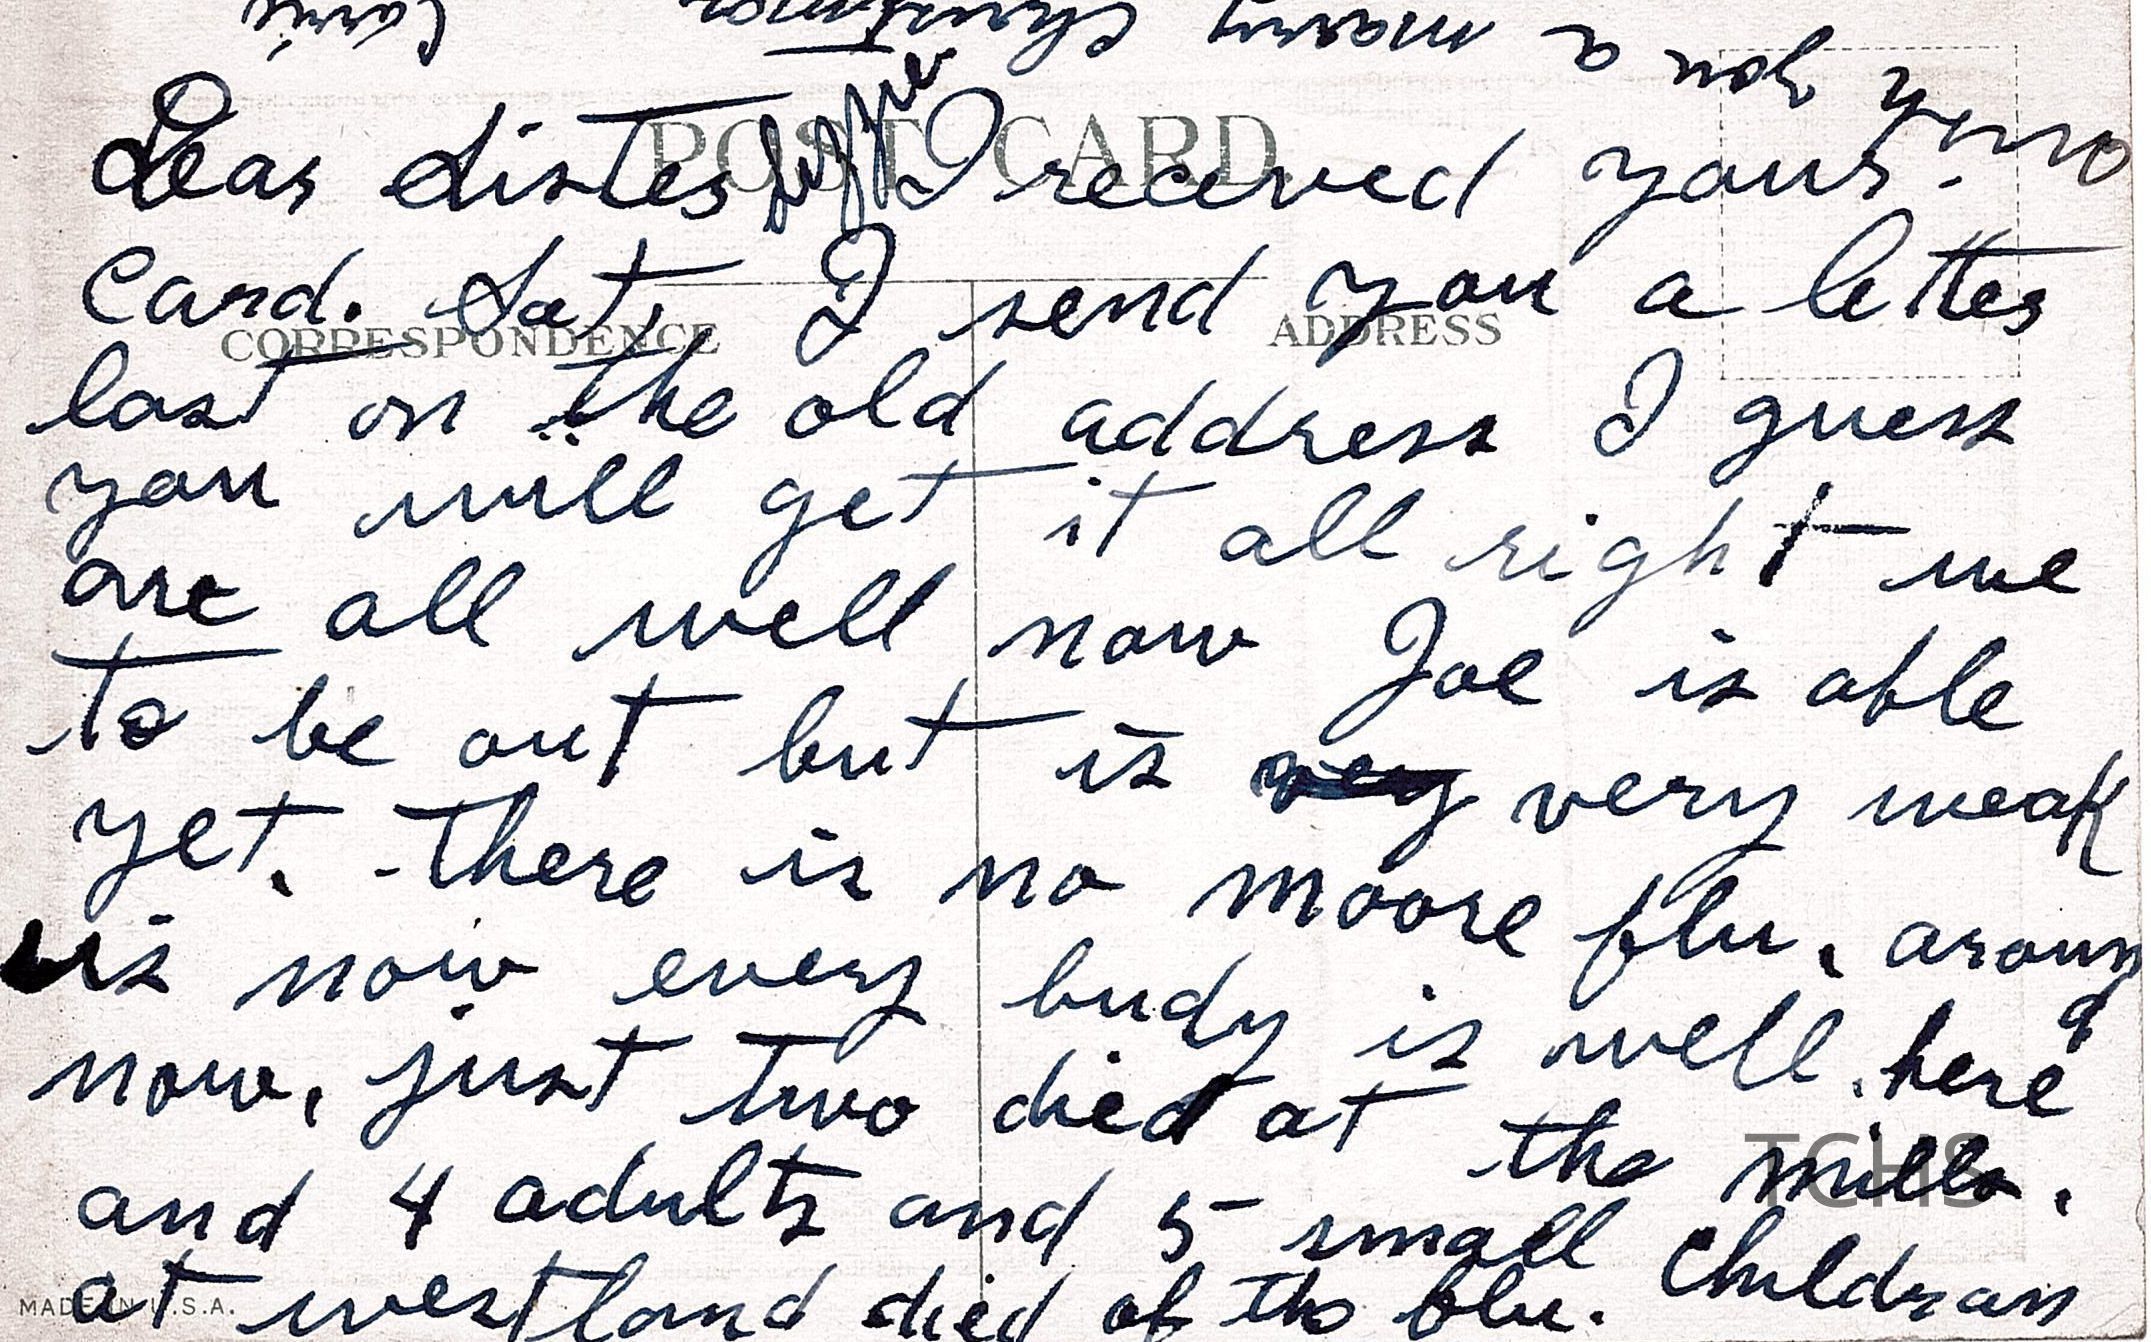 Dear Sister I receved your.
Card. Sat, I send you a letter
last on the old address I guess
you will get it all right we
are all well now Joe is able
to be out but is very very weak
yet. there is no moore flu. around
us now every budy is well here
now, just two died at the mills.
and 4 adults and 5 small Childran
at westland died of the flu.
wish you a marry Christmas
POST CARD.
CORRESPONDENCE
ADDRESS
MADE IN U.S.A.
TCHS